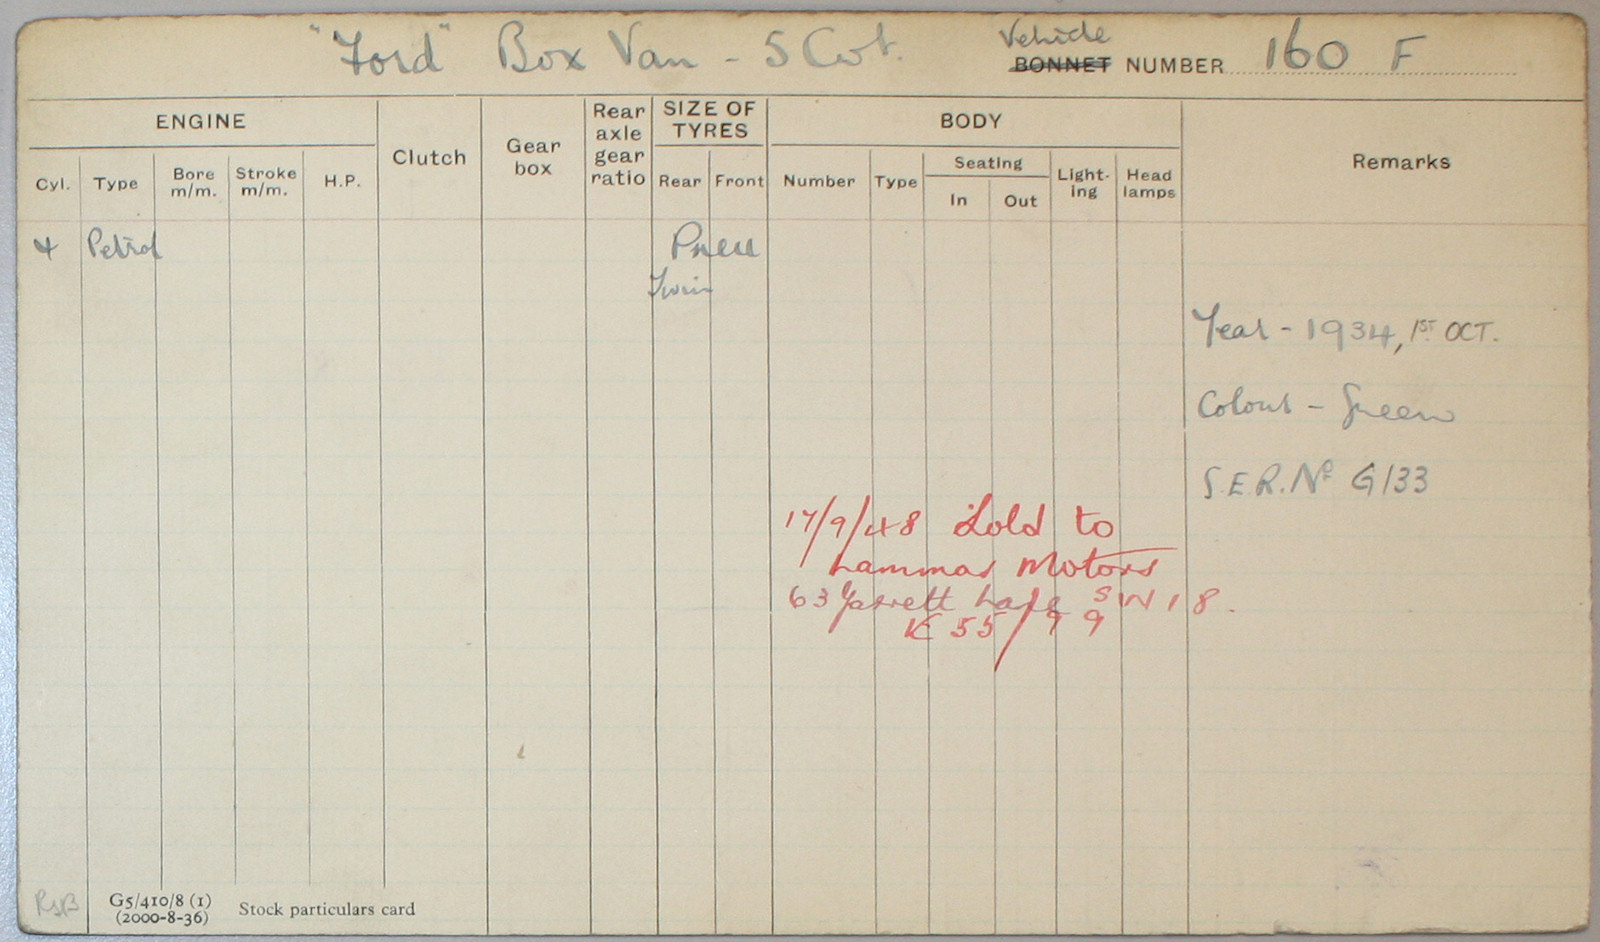 "Ford" Box Van - 5 Cwt.
Vehicle
BONNET NUMBER 160 F
ENGINE
Clutch
Gear box
Rear axle gear ratio
SIZE OF TYRES
BODY
Remarks
Cyl. Type Bore m/m. Stroke m/m. H.P.
Rear Front
Number Type Seating In Out Light-ing Head lamps
4 Petrol Pneu
Twin
Year - 1934, 1ST OCT.
Colour - Green
S.E.R. No G133
17/9/48 Sold to
Lammas Motors
63 Garrett Lane SW18.
K55/99
RSB
G5/410/8 (1)
(2000-8-36)
Stock particulars card